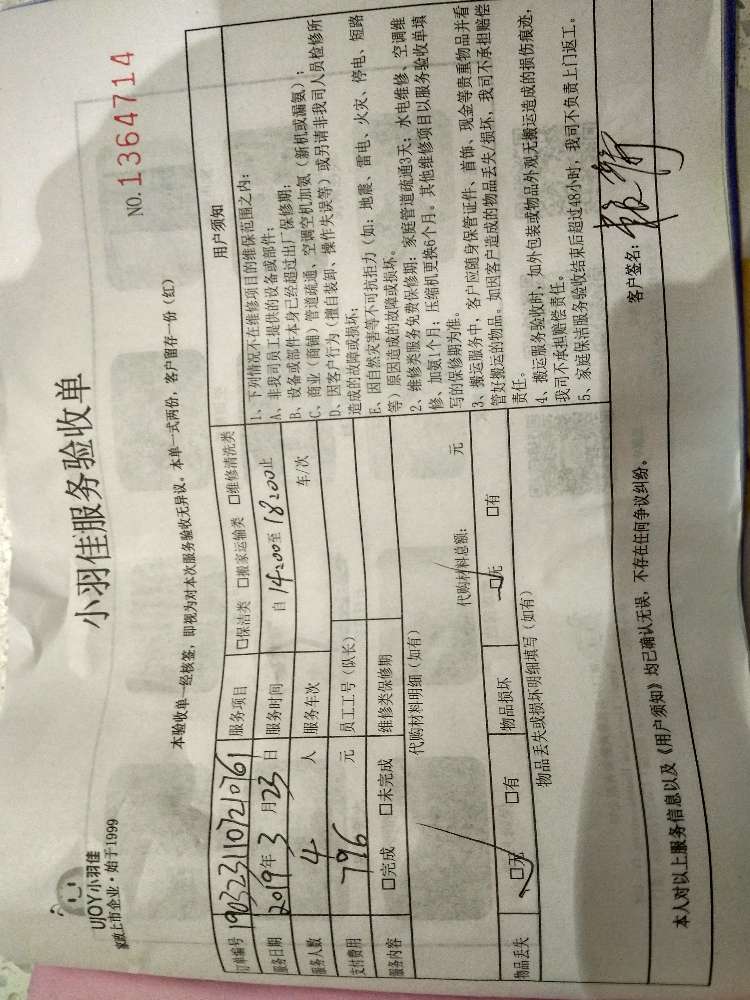 UJOY小羽佳
家政上市企业·始于1999
小羽佳服务验收单
NO. 1364714
本验收单一经核签，即视为对本次服务验收无异议。本单一式两份，客户留存一份（红）
订单编号 1903231107210761 服务项目 □保洁类 □搬家运输类 □维修清洗类
服务日期 2019年3月23日 服务时间 自14:00至18:00止
服务人数 4 人 服务车次 车/次
支付费用 796 元 员工工号（队长）
服务内容 □完成 □未完成 维修类保修期
代购材料明细（如有）
代购材料总额： 元
物品丢失 □无 □有 物品损坏 □无 □有
物品丢失或损坏明细填写（如有）
用户须知
1、下列情况不在维修项目的维保范围之内：
A、非我司员工提供的设备或部件；
B、设备或部件本身已经超过出厂保修期；
C、商业（商铺）管道疏通、空调空机加氨（新机或漏氨）；
D、因客户行为（擅自装卸、操作失误等）或另请非我司人员检修所
造成的故障或损坏；
E、因自然灾害等不可抗拒力（如：地震、雷电、火灾、停电、短路
等）原因造成的故障或损坏。
2、维修类服务免费保修期：家庭管道疏通3天；水电维修、空调维
修、加氨1个月；压缩机更换6个月。其他维修项目以服务验收单填
写的保修期为准。
3、搬运服务中，客户应随身保管证件、首饰、现金等贵重物品并看
管好搬运的物品。如因客户造成的物品丢失/损坏，我司不承担赔偿
责任。
4、搬运服务验收时，如外包装或物品外观无搬运造成的损伤痕迹，
我司不承担赔偿责任。
5、家庭保洁服务验收结束后超过48小时，我司不负责上门返工。
本人对以上服务信息以及《用户须知》均已确认无误，不存在任何争议纠纷。
客户签名：